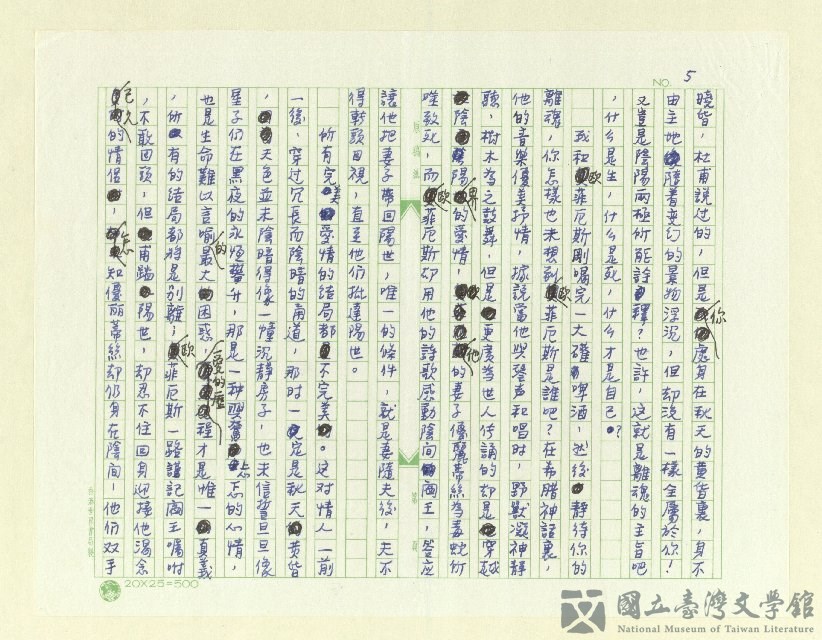 NO. 5
曉昏，杜甫說過的，但是你處身在秋天的黃昏裏，身不
由主地隨着變幻的景物浮沉，但却沒有一樣全屬於你！
又豈是陰陽兩極所能詮釋？也許，這就是離魂的主旨吧
，什么是生，什么是死，什么才是自己？
我和歐菲厄斯剛喝完一大確啤酒，然後靜待你的
離魂，你怎樣也未想到歐菲厄斯是誰吧？在希腊神話裏，
他的音樂優美抒情，據說當他與琴声和唱时，野獸凝神靜
聽，樹木為之鼓舞，但是更廣為世人传誦的却是穿越
陰陽界的爱情，他的妻子優麗蒂絲為毒蛇所
噬致死，而歐菲厄斯却用他的詩歌感動陰间阎王，答应
讓他把妻子帶回陽世，唯一的條件，就是妻隨夫後，夫不
得転頭回視，直至他们抵達陽世。
所有完美爱情的结局都不完美。这对情人一前
一後，穿过冗長而陰暗的甬道，那时一定是秋天黄昏
，天色並未陰暗得像一幢沉静房子，也未信誓旦旦像
星子们在黑夜的永恆誓升，那是一种興奮忐忑的心情，
也是生命難以言喻的最大困惑，爱的歷程才是惟一真義
，所有的结局都將是别離；歐菲厄斯一路謹記阎王嘱咐
，不敢回頭，但甫踏陽世，却忍不住回身迎接他渴念
已久的情侶，怎知優丽蒂絲却仍身在陰间，他们双手
20X25=500
國立臺灣文学館
National Museum of Taiwan Literature